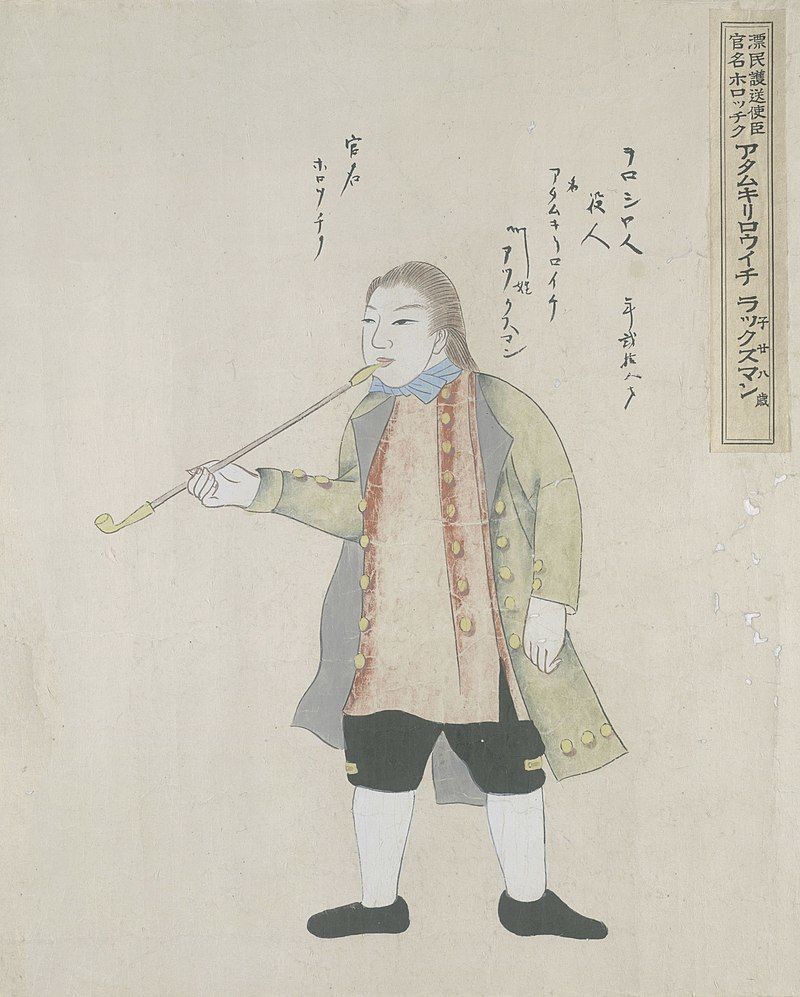 漂民護送使臣
官名ホロッチク アタムキリロウイチ ラックスマン 子廿八歳
ヲロシヤ人
役人 年弐拾八才
名 アタムキリロイチ
姓
官名
ホロツチク